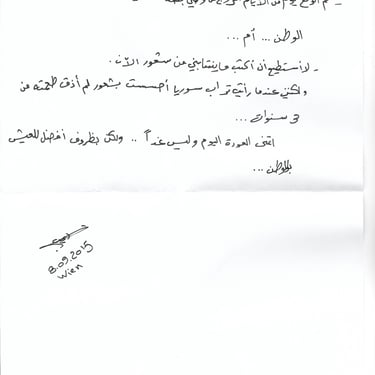 - لم أتوقع يوم من الأيام
الوطن ... أم ...
- لا أستطيع أن أكتب ما ينتابني من شعور الآن.
ولكني عندما رأيت تراب سوريا أحسست بشعور لم أذق طعمته من
3 سنوات ...
اتمنى العودة اليوم وليس غداً .. ولكن بظروف أفضل للعيش
بالوطن ...
8.09.2015
Wien